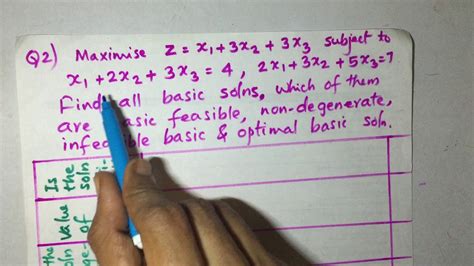 Q2) Maximise Z = x₁+3x₂+3x₃ subject to
x₁+2x₂+3x₃=4, 2x₁+3x₂+5x₃=7
Find all basic solns, which of them
are basic feasible, non-degenerate,
infeasible basic & optimal basic soln.
Is
the
soln
value
of
the